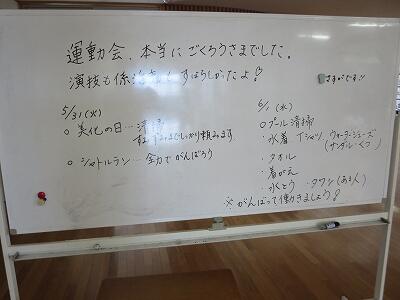 運動会、本当にごくろうさまでした。
演技も係活動もすばらしかったよ♡
さすがです!!
5/31(火)
○ 美化の日…清掃
すみずみまでしっかり頼みます
○ シャトルラン…全力でがんばろう
6/1(水)
○プール清掃
・水着 Tシャツ ウォーターシューズ
(サンダル・くつ)
・タオル
・着がえ
・水とう ・タワシ(ある人)
※がんばって働きましょう!